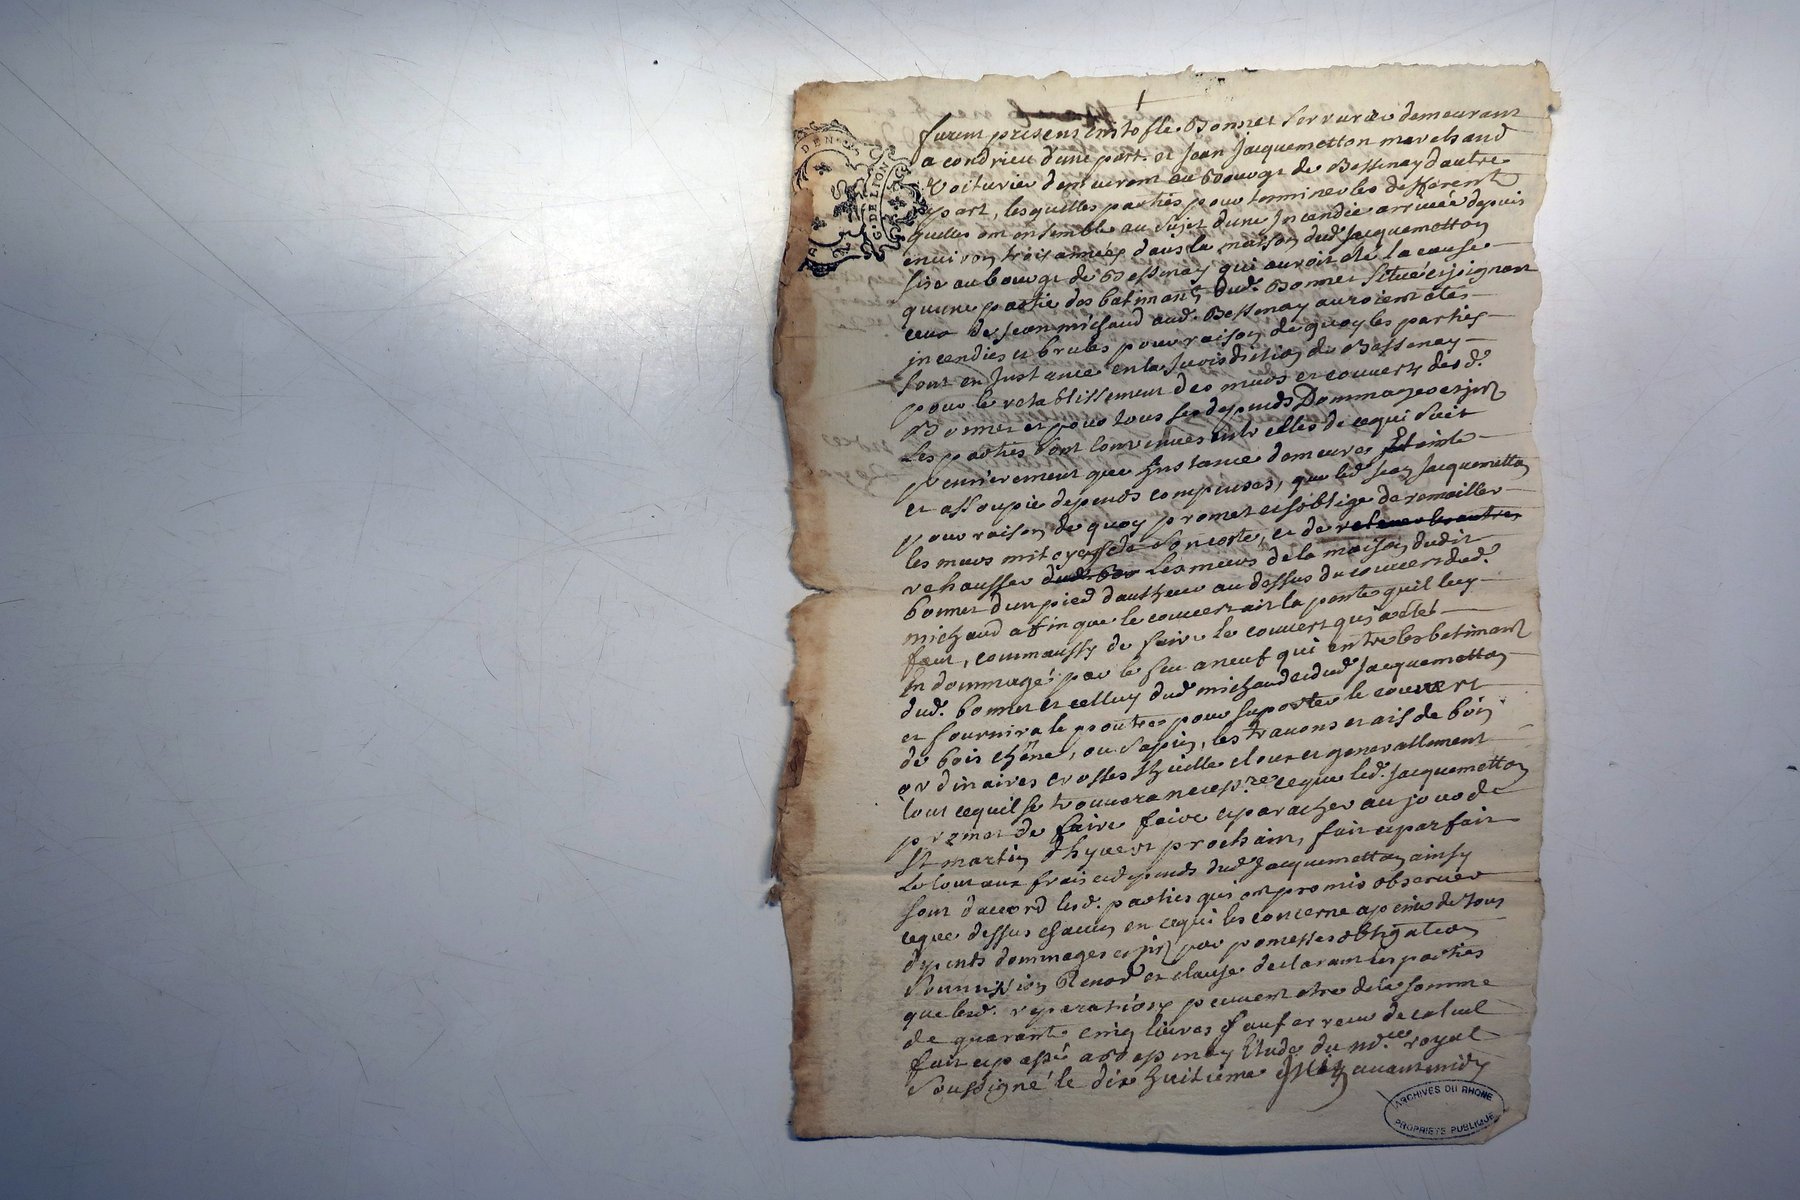 furent presens cristofle Bonnet serrurier demeurant
a condrieu d'une part. et Jean Jacquemetton marchand
Voiturier demeurant au Bourgt de Bessenay d'autre
part, lesquelles parties pour terminer les different
quelles ont ensemble au sujet d'une Incendie arrivée depuis
environ trois années dans la maison dud. Jacquemetton
size au bourgt de Bessenay qui auroit été la cause
qu'une partie des batimants dud. Bonnet situé et joignant
ceux de Jean michaud aud. Bessenay auroient étes
jncendies et brules pour raison de quoy les parties
sont en Justance en la Jurisdiction de Bessenay
pour le retablissement des murs et couverts desd.
Bonnet et pour tous les depends Dommages et jnts
Les parties sont convenues entre elles de ce qui suit
premierement que Instance demeure Eteinte
et assoupie depends compenses, que led. Jean Jacquemetton
pour raison de quoy promet et soblige de remailler
les murs mitoyens de son coste, et de relever les autres
rehausser dud. bon les murs de la maison dudit
bonnet d'un pied d'autheur au dessus du couvert dud.
michaud afin que le couvert ait la pente quil luy
faut, comm'aussy de faire le couvert qui a étés
En dommagé par le feu a neuf qui entre les batimant
dud. bonnet et celluy dud. michaud et dud. Jacquemetton
et fournira le poutre pour suporter le couvert
de bois chêne, ou sapin, les travons et ais de bois
ordinaires crosses thuille clous et generallement
tout ce quil se trouvera necess.re ce que led. Jacquemetton
promet de faire faire et parachever au jour de
St martin d'hyvert prochain, fait et parfait
Le tout aux frais et depends dud. Jacquemetton ainsy
sont d'accord lesd. parties qui ont promis observer
ce que dessus chacun en ce qui les concerne a peine de tous
depends dommages et jnts par promesses obligation
soumission Renon et clause declarant les parties
que lesd. reparations peuvent etre de la somme
de quarante cinq livres sauf erreur de calcul
fait et passé a Bessenay Etude du nd.re royal
soussigné le dix huitieme avant midy
G. DE LION
ARCHIVES DU RHONE
PROPRIETE PUBLIQUE